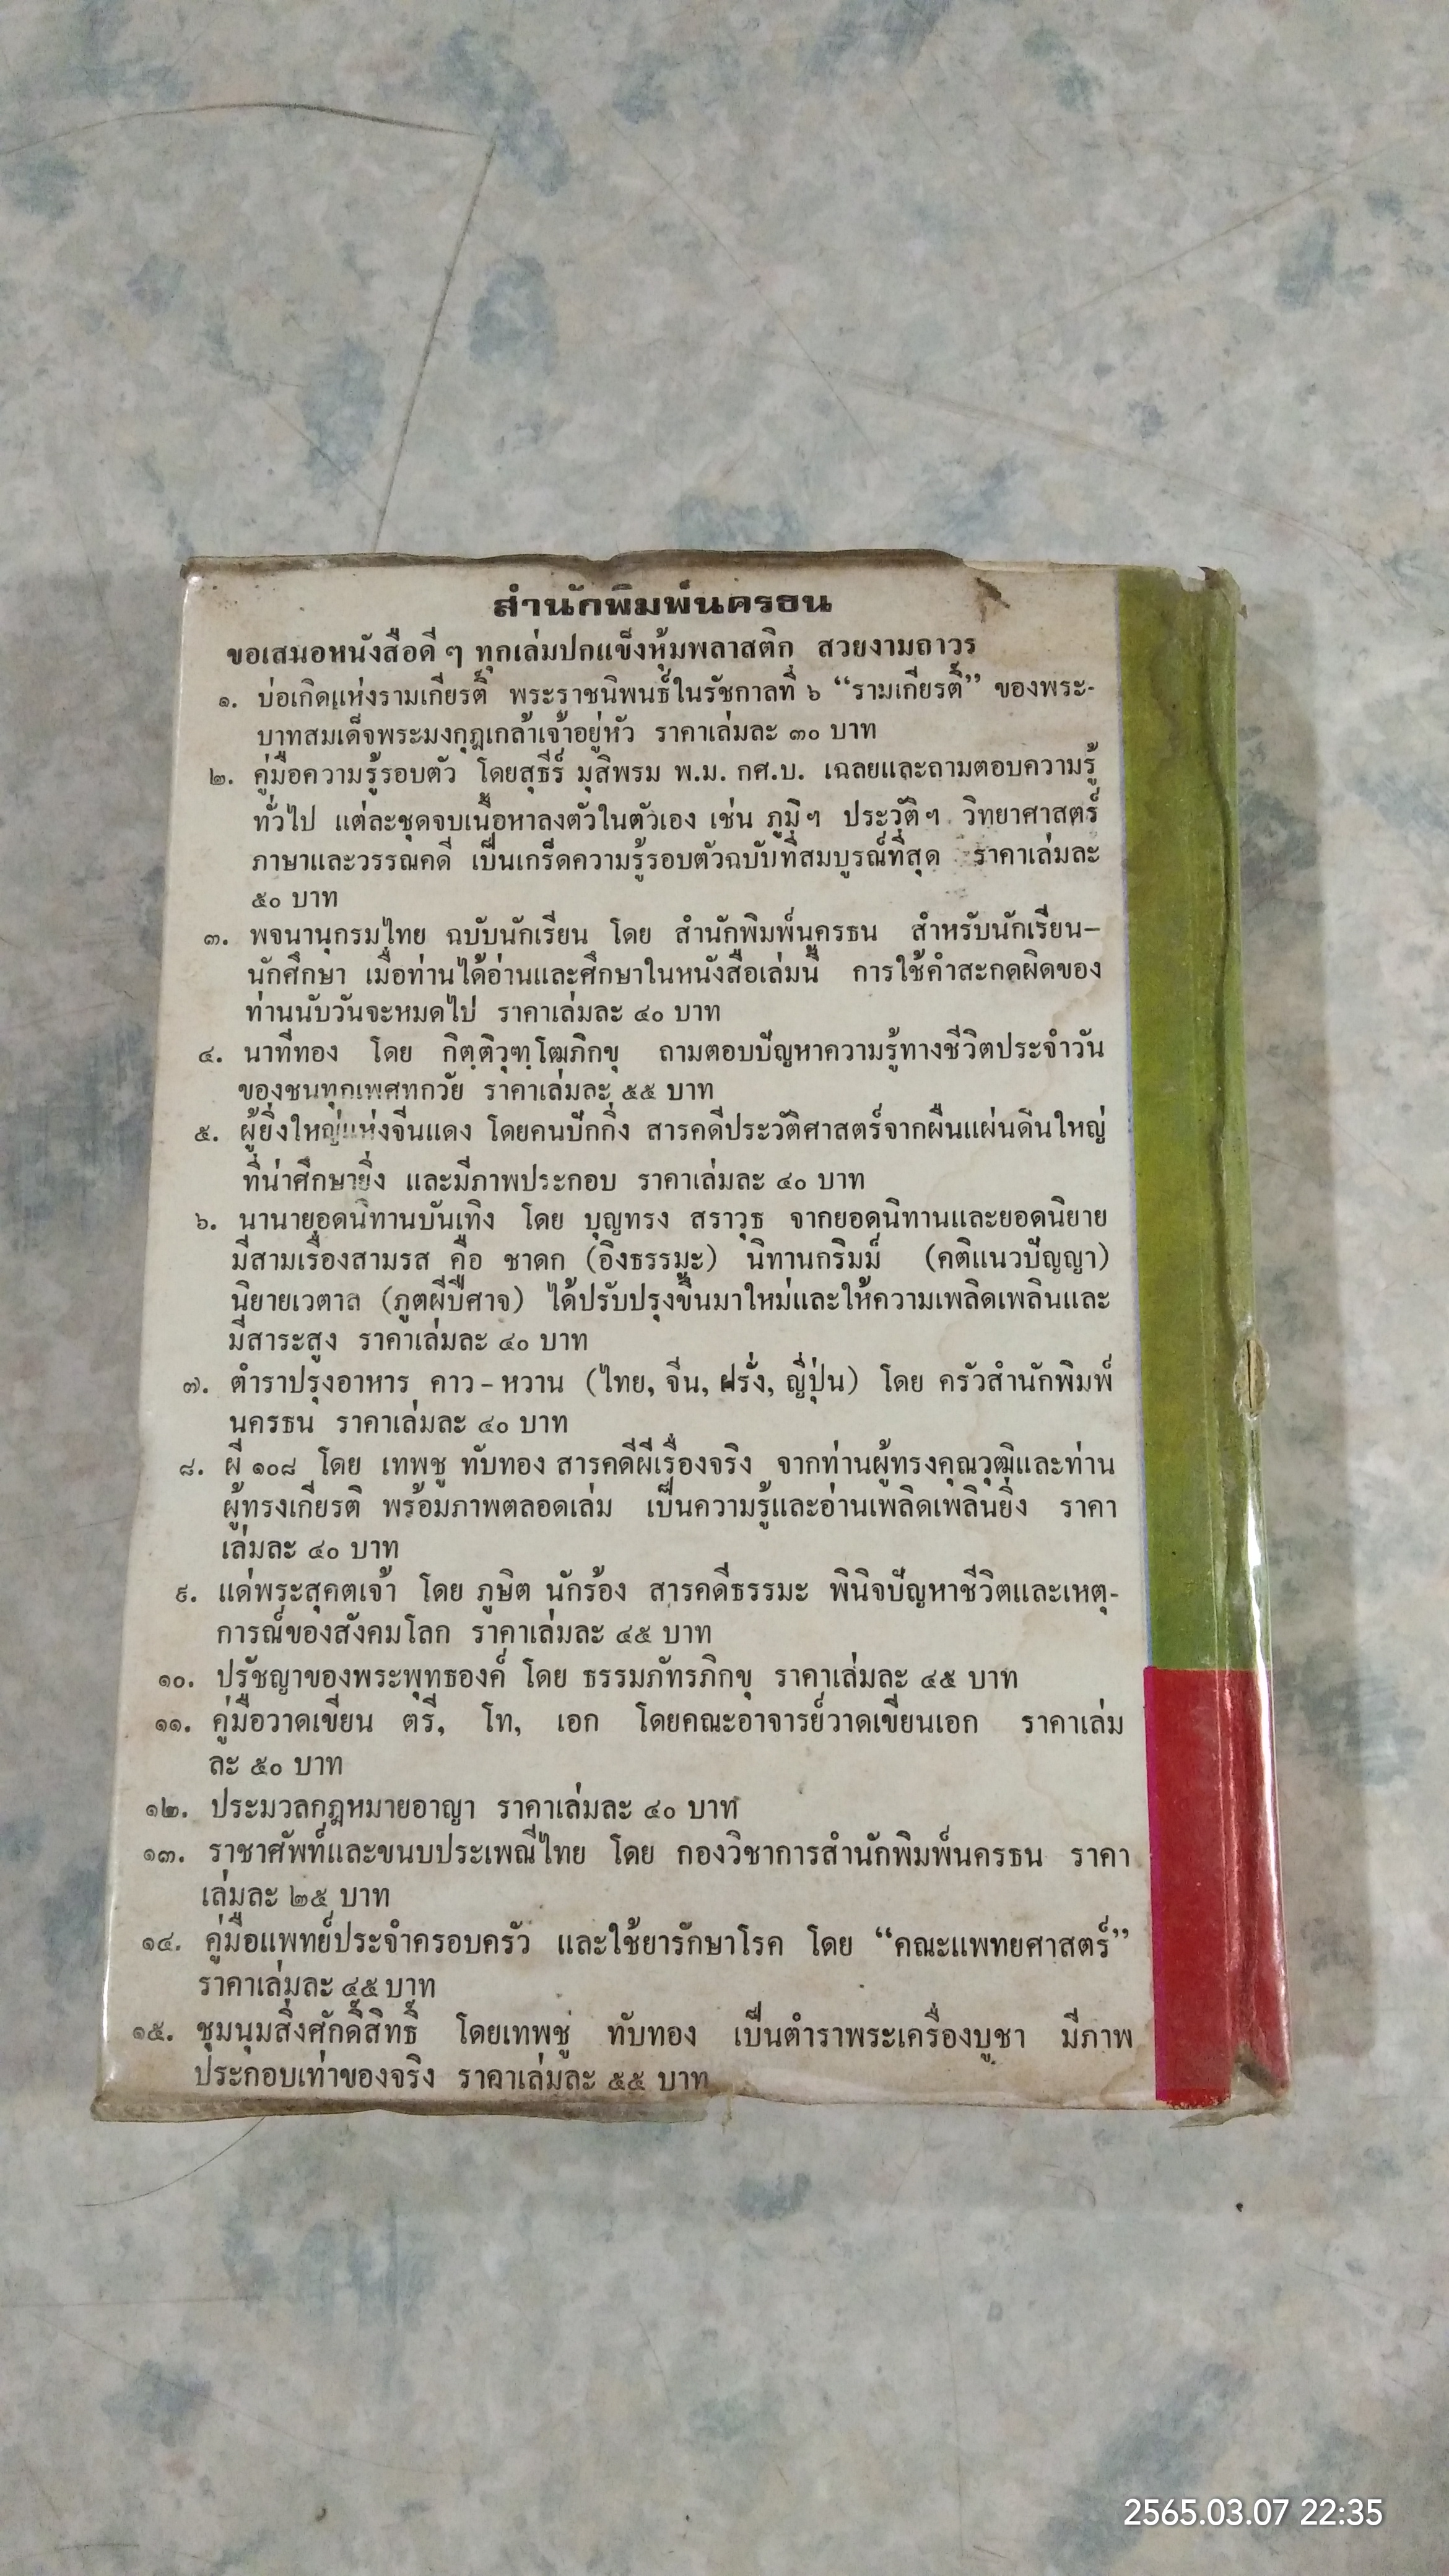 สำนักพิมพ์นครธน
ขอเสนอหนังสือดี ๆ ทุกเล่มปกแข็งหุ้มพลาสติก สวยงามถาวร
๑. บ่อเกิดแห่งรามเกียรติ์ พระราชนิพนธ์ในรัชกาลที่ ๖ “รามเกียรติ์” ของพระ-
บาทสมเด็จพระมงกุฎเกล้าเจ้าอยู่หัว ราคาเล่มละ ๓๐ บาท
๒. คู่มือความรู้รอบตัว โดยสุธีร์ มุสิพรม พ.ม. กศ.บ. เฉลยและถามตอบความรู้
ทั่วไป แต่ละชุดจบเนื้อหาลงตัวในตัวเอง เช่น ภูมิฯ ประวัติฯ วิทยาศาสตร์
ภาษาและวรรณคดี เป็นเกร็ดความรู้รอบตัวฉบับที่สมบูรณ์ที่สุด ราคาเล่มละ
๕๐ บาท
๓. พจนานุกรมไทย ฉบับนักเรียน โดย สำนักพิมพ์นครธน สำหรับนักเรียน–
นักศึกษา เมื่อท่านได้อ่านและศึกษาในหนังสือเล่มนี้ การใช้คำสะกดผิดของ
ท่านนับวันจะหมดไป ราคาเล่มละ ๔๐ บาท
๔. นาทีทอง โดย กิตฺติวุฑฺโฒภิกขุ ถามตอบปัญหาความรู้ทางชีวิตประจำวัน
ของชนทุกเพศทุกวัย ราคาเล่มละ ๕๕ บาท
๕. ผู้ยิ่งใหญ่แห่งจีนแดง โดยคนปักกิ่ง สารคดีประวัติศาสตร์จากผืนแผ่นดินใหญ่
ที่น่าศึกษายิ่ง และมีภาพประกอบ ราคาเล่มละ ๔๐ บาท
๖. นานายอดนิทานบันเทิง โดย บุญทรง สราวุธ จากยอดนิทานและยอดนิยาย
มีสามเรื่องสามรส คือ ชาดก (อิงธรรมะ) นิทานกริมม์ (คติแนวปัญญา)
นิยายเวตาล (ภูตผีปีศาจ) ได้ปรับปรุงขึ้นมาใหม่และให้ความเพลิดเพลินและ
มีสาระสูง ราคาเล่มละ ๔๐ บาท
๗. ตำราปรุงอาหาร คาว - หวาน (ไทย, จีน, ฝรั่ง, ญี่ปุ่น) โดย ครัวสำนักพิมพ์
นครธน ราคาเล่มละ ๔๐ บาท
๘. ผี ๑๐๘ โดย เทพชู ทับทอง สารคดีผีเรื่องจริง จากท่านผู้ทรงคุณวุฒิและท่าน
ผู้ทรงเกียรติ พร้อมภาพตลอดเล่ม เป็นความรู้และอ่านเพลิดเพลินยิ่ง ราคา
เล่มละ ๔๐ บาท
๙. แด่พระสุคตเจ้า โดย ภูษิต นักร้อง สารคดีธรรมะ พินิจปัญหาชีวิตและเหตุ-
การณ์ของสังคมโลก ราคาเล่มละ ๔๕ บาท
๑๐. ปรัชญาของพระพุทธองค์ โดย ธรรมภัทรภิกขุ ราคาเล่มละ ๔๕ บาท
๑๑. คู่มือวาดเขียน ตรี, โท, เอก โดยคณะอาจารย์วาดเขียนเอก ราคาเล่ม
ละ ๕๐ บาท
๑๒. ประมวลกฎหมายอาญา ราคาเล่มละ ๔๐ บาท
๑๓. ราชาศัพท์และขนบประเพณีไทย โดย กองวิชาการสำนักพิมพ์นครธน ราคา
เล่มละ ๒๕ บาท
๑๔. คู่มือแพทย์ประจำครอบครัว และใช้ยารักษาโรค โดย “คณะแพทยศาสตร์”
ราคาเล่มละ ๔๕ บาท
๑๕. ชุมนุมสิ่งศักดิ์สิทธิ์ โดยเทพชู ทับทอง เป็นตำราพระเครื่องบูชา มีภาพ
ประกอบเท่าของจริง ราคาเล่มละ ๕๕ บาท
2565.03.07 22:35